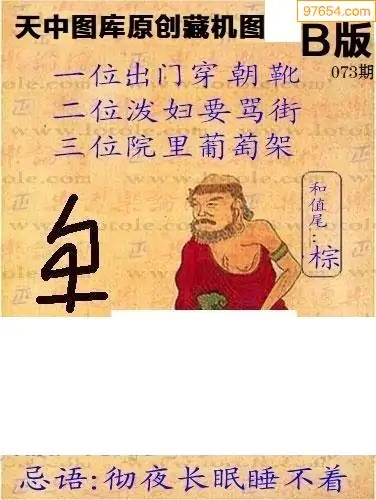 97654.com
天中图库原创藏机图
B版
073期
一位出门穿朝靴
二位泼妇要骂街
三位院里葡萄架
和值尾:棕
忌语:彻夜长眠睡不着